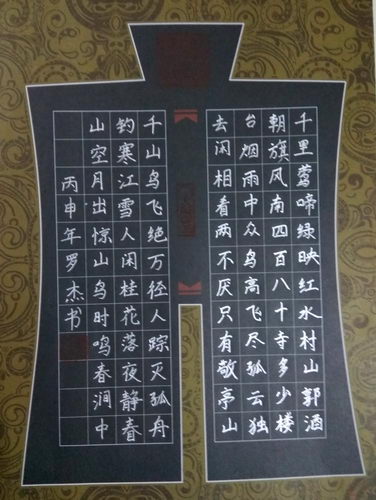 千里莺啼绿映红水村山郭酒
朝旗风南四百八十寺多少楼
台烟雨中众鸟高飞尽孤云独
去闲相看两不厌只有敬亭山
千山鸟飞绝万径人踪灭孤舟
钓寒江雪人闲桂花落夜静春
山空月出惊山鸟时鸣春涧中
丙申年罗杰书